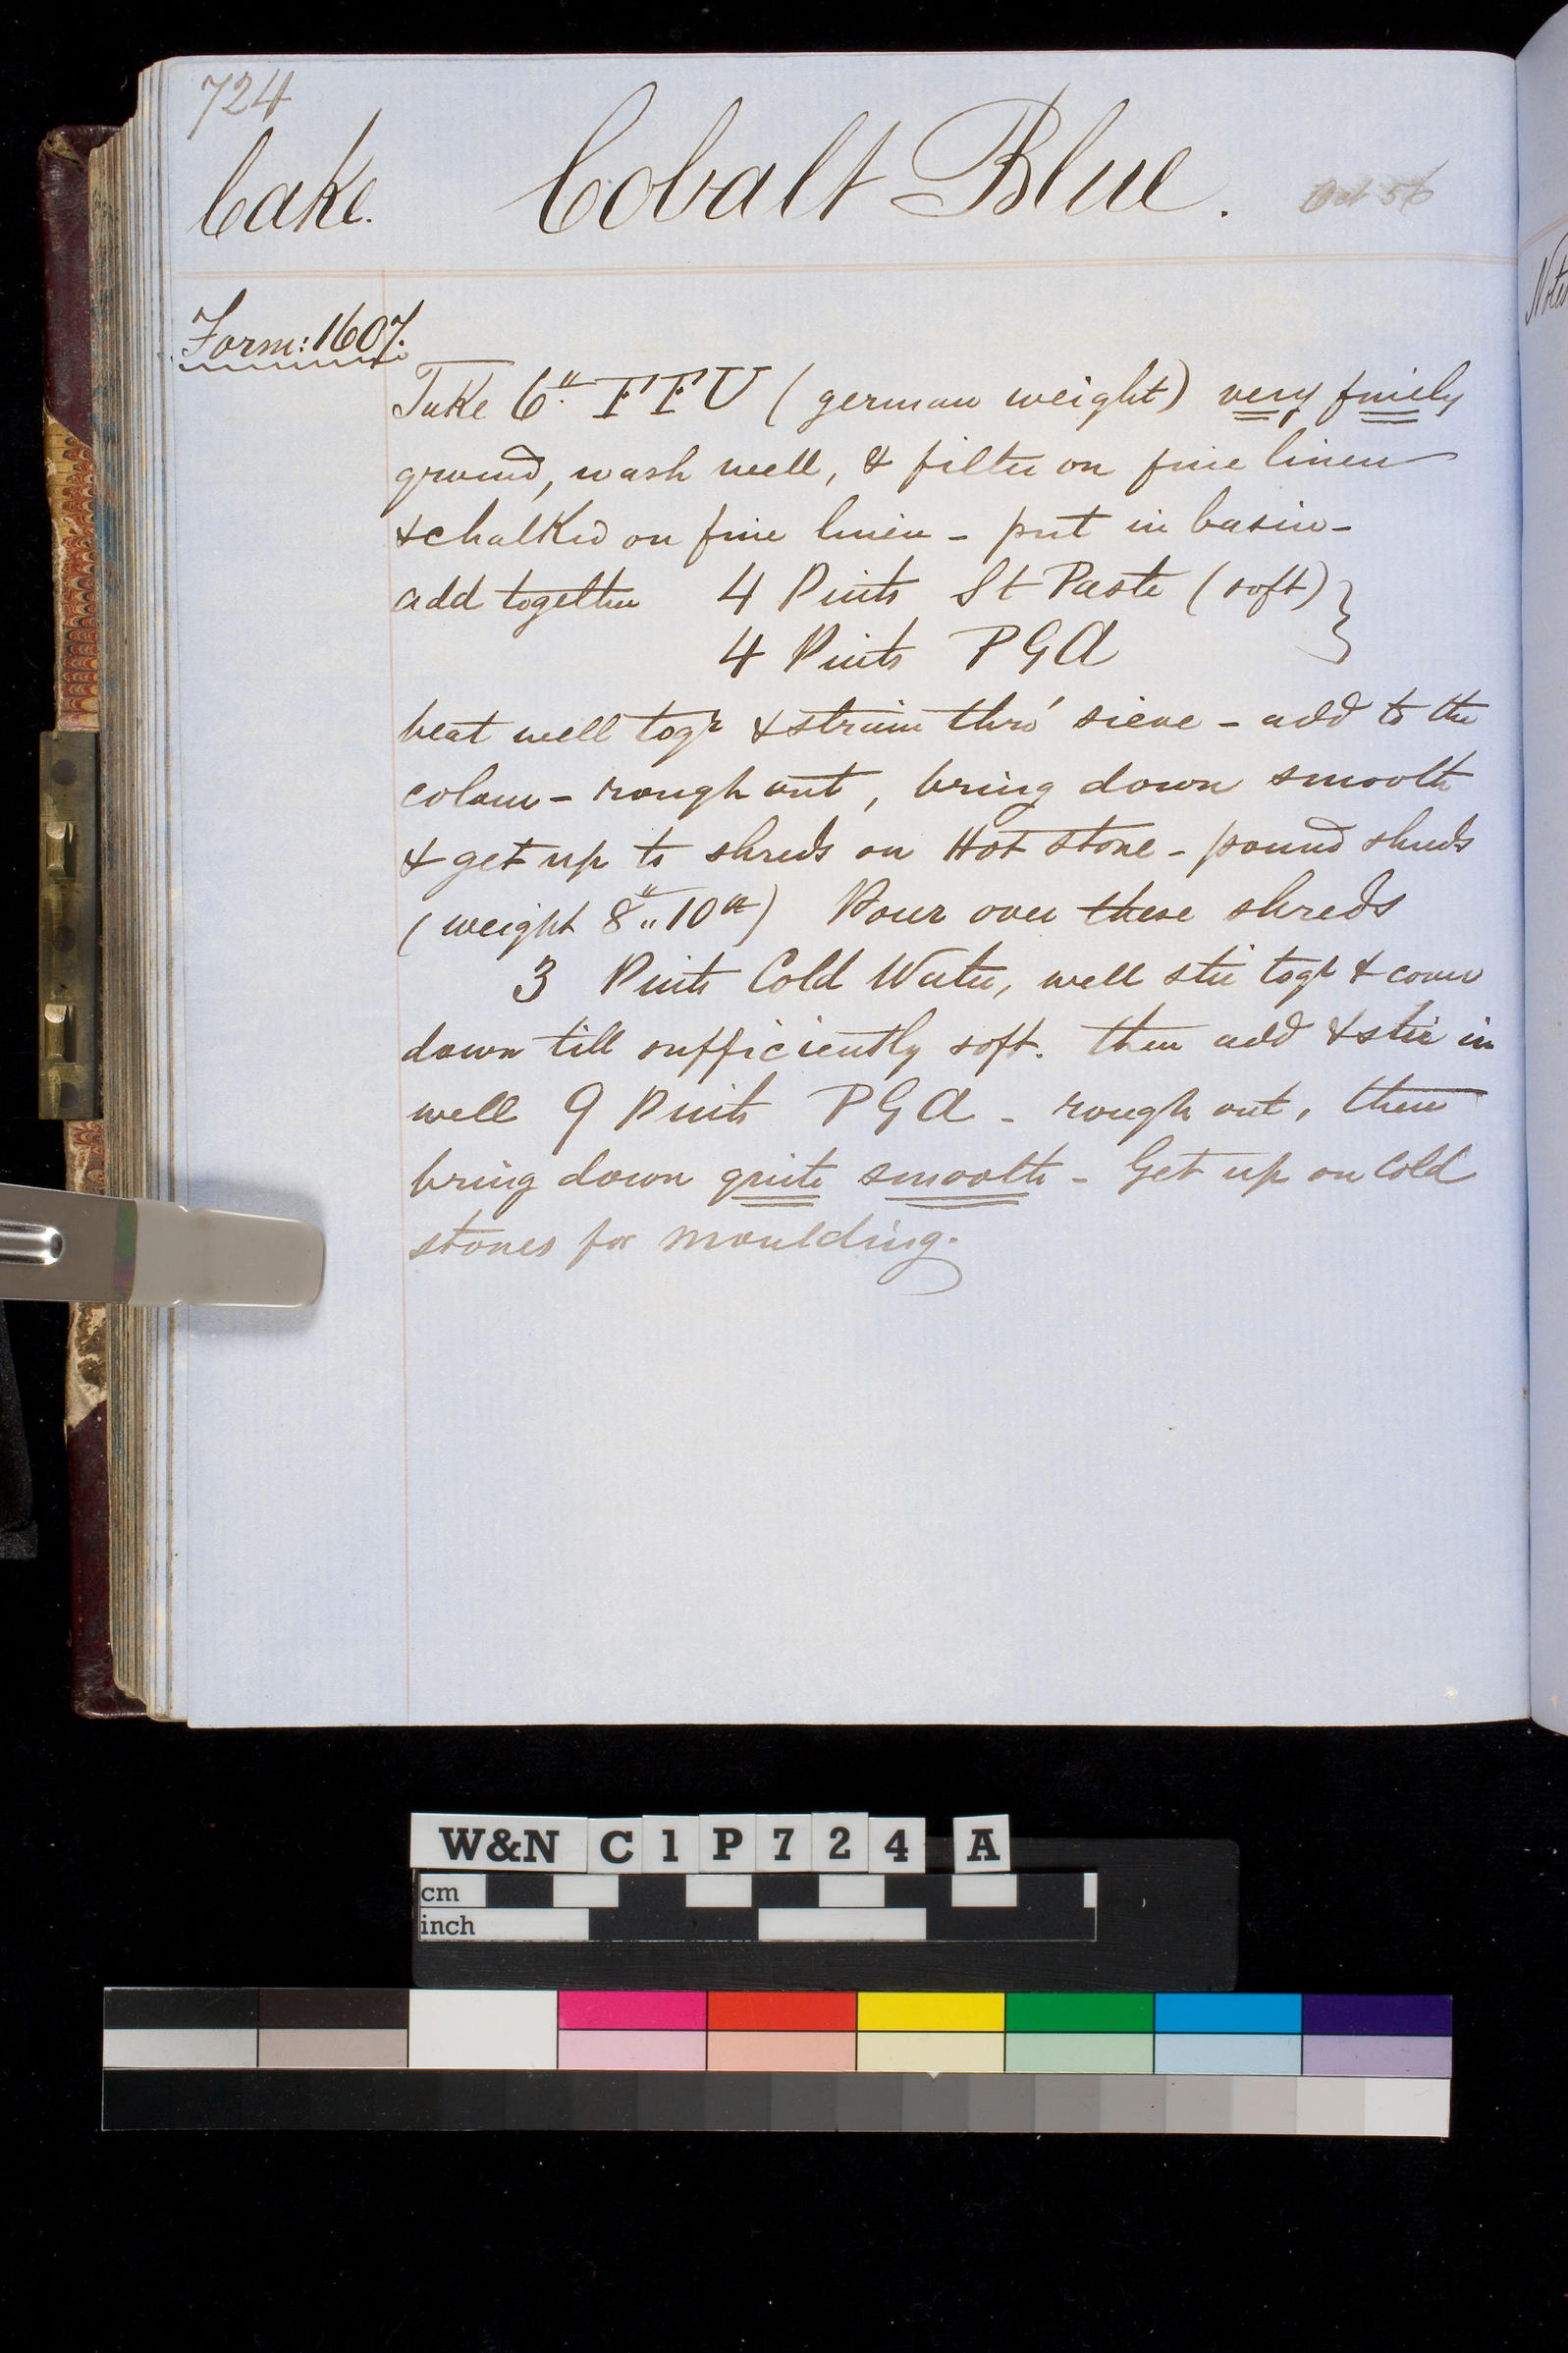 724
Cake. Cobalt Blue. Oct 56
Form: 1607.
Take 6" FFU (german weight) very finely
ground, wash well, & filter on fine linen
& chalked on fine linen - put in basin -
add together 4 Pints St Paste (soft) }
4 Pints PGA
beat well togr & strain thro' sieve - add to the
colour - rough out, bring down smooth
& get up to shreds on Hot stone - pound shreds
(weight 8" 10 oz) Pour over these shreds
3 Pints Cold Water, well stir togr & cover
down till sufficiently soft. then add & stir in
well 9 Pints PGA - rough out, then
bring down quite smooth - Get up on Cold
stones for moulding.
Note
W&N C1P724 A
cm
inch